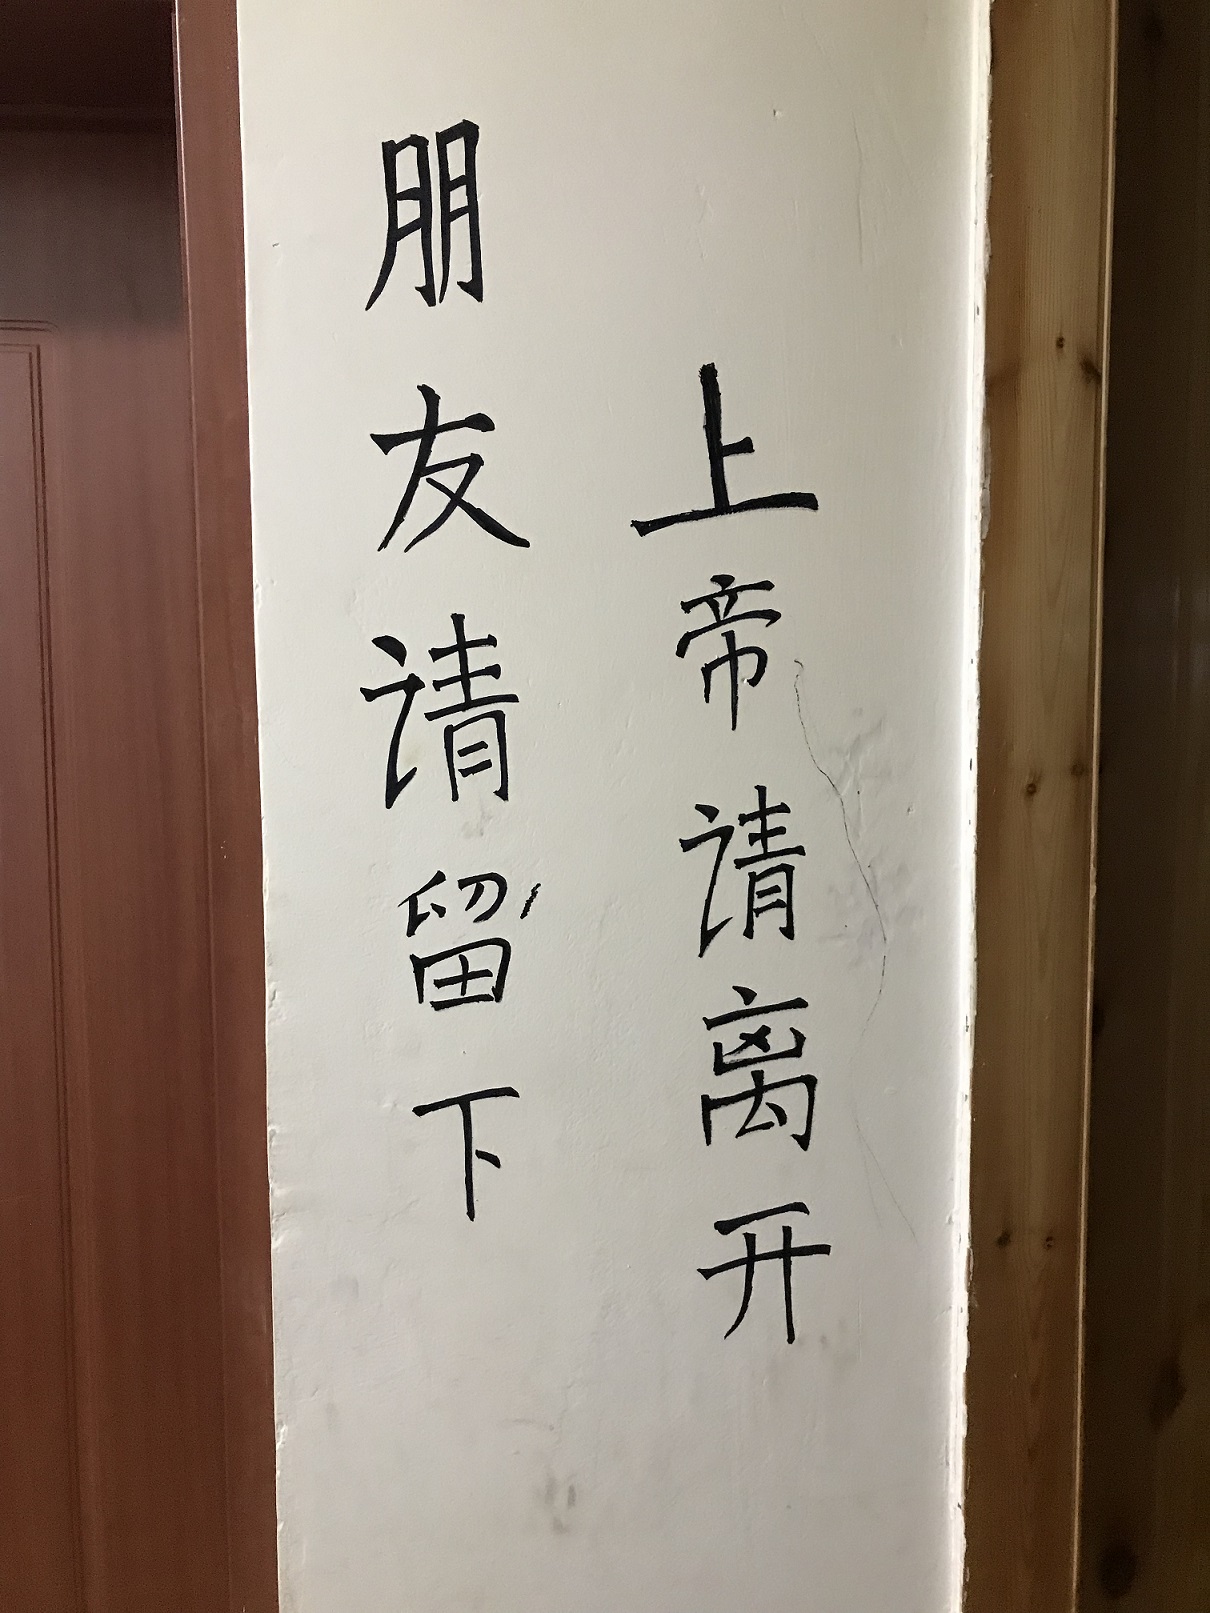 朋友请留下
上帝请离开